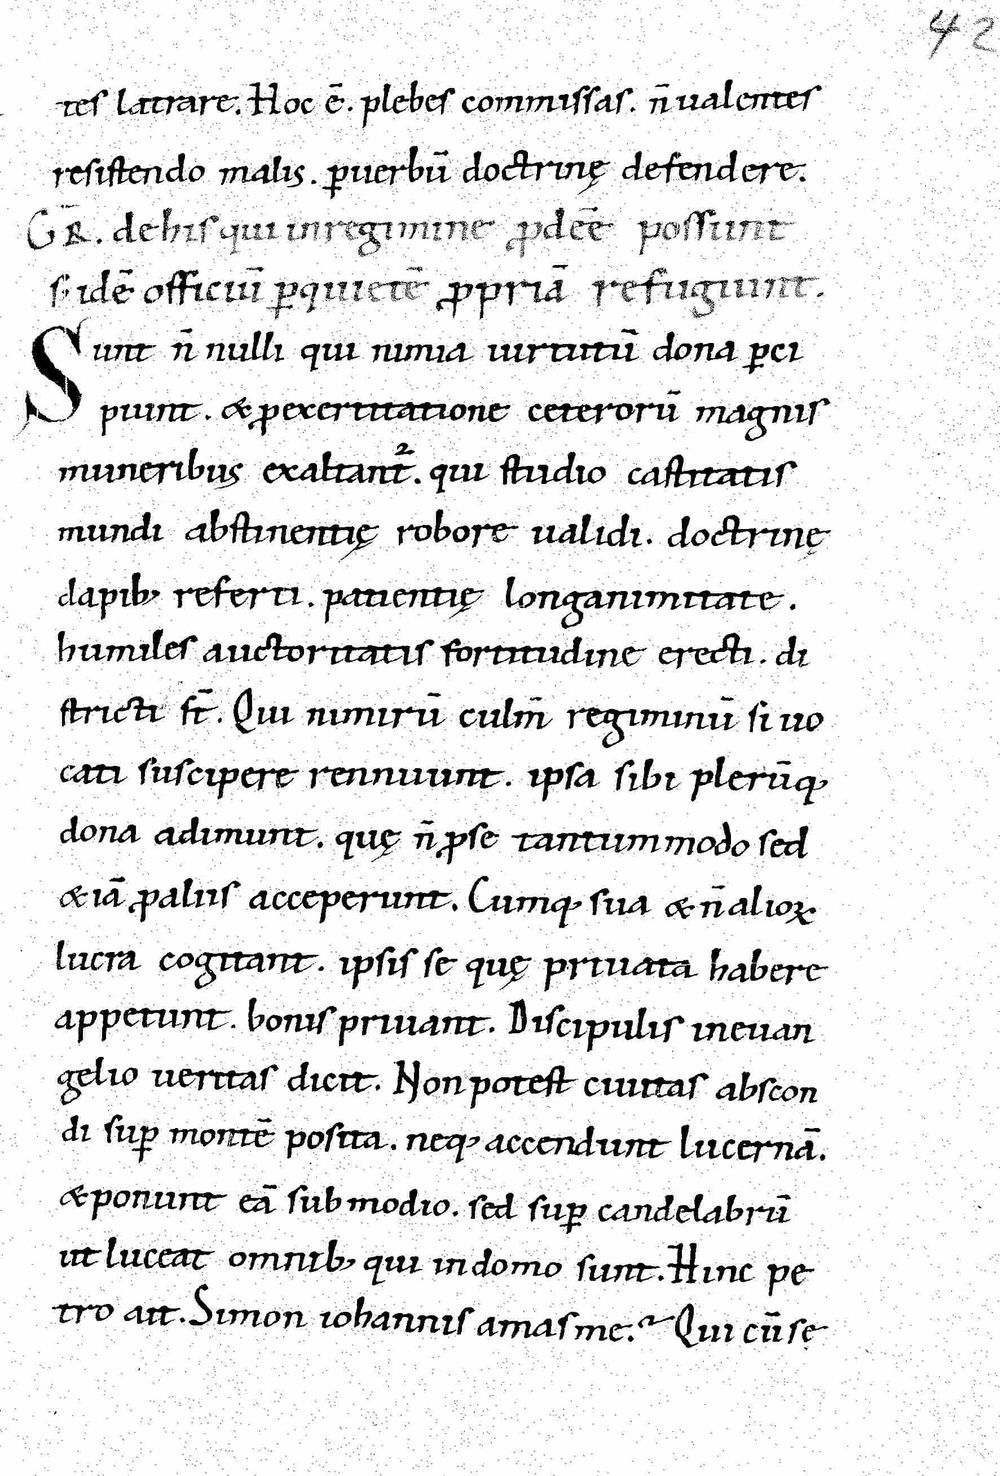 42
tes latrare. Hoc ē. plebes commissas. n̄ ualentes
resistendo malis. ꝑ uerbū doctrinę defendere.
GR̄. de his qui in regimine ꝓdeē possunt
s; idē officiū ꝑ quietē ꝓpriā refugiunt.
Sunt n̄ nulli qui nimia uirtutū dona ꝑci
piunt. & ꝓ exercitatione ceterorū magnis
muneribus exaltant᷑. qui studio castitatis
mundi abstinentię robore ualidi. doctrinę
dapibꝫ referti. patientię longanimitate.
humiles auctoritatis fortitudine erecti. di
stricti st̄. Qui nimirū culm̄ regiminū si uo
cati suscipere rennuunt. ipsa sibi plerūqꝫ
dona adimunt. quę n̄ ꝓ se tantummodo sed
& iā ꝓ aliis acceperunt. Cumqꝫ sua & n̄ alioꝝ
lucra cogitant. ipsis se quę priuata habere
appetunt. bonis priuant. Discipulis in euan
gelio ueritas dicit. Non potest ciuitas abscon
di suꝑ montē posita. neqꝫ accendunt lucernā.
& ponunt eā sub modio. sed suꝑ candelabrū
ut luceat omnibꝫ qui in domo sunt. Hinc pe
tro ait. Simon iohannis amas me.~ Qui cū sę